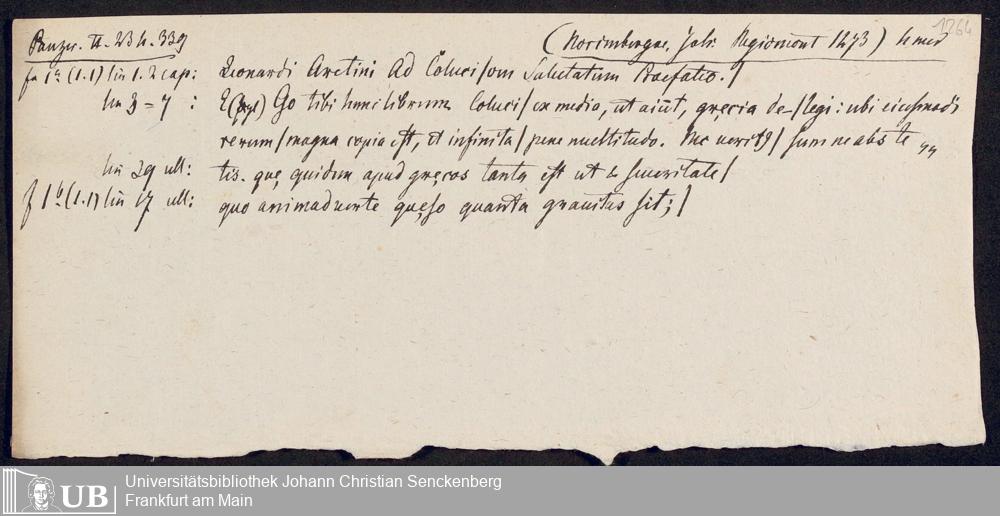 Panzer. II. 234. 339 (Norimbergae, Joh: Regiomont 1473)
1264
f 1a (1.1) lin 1. 2 cap: Leonardi Aretini Ad Coluci/om Salutatum Praefatio./
lin 3=7 : E Go tibi hunc librum Coluci/ ex media, ut aiūt, gręcia de-/legi: ubi eiusmodi
rerum/magna copia est, et infinita/ pene multitudo. Nec uerit9/ sum ne abs te
lin 29 ult: tis. quę quidem apud gręcos tanta est ut & seueritate/
f 1b (1.1) lin 17 ult: quo animaduerte quęso quanta grauitas sit;/
UB
Universitätsbibliothek Johann Christian Senckenberg
Frankfurt am Main